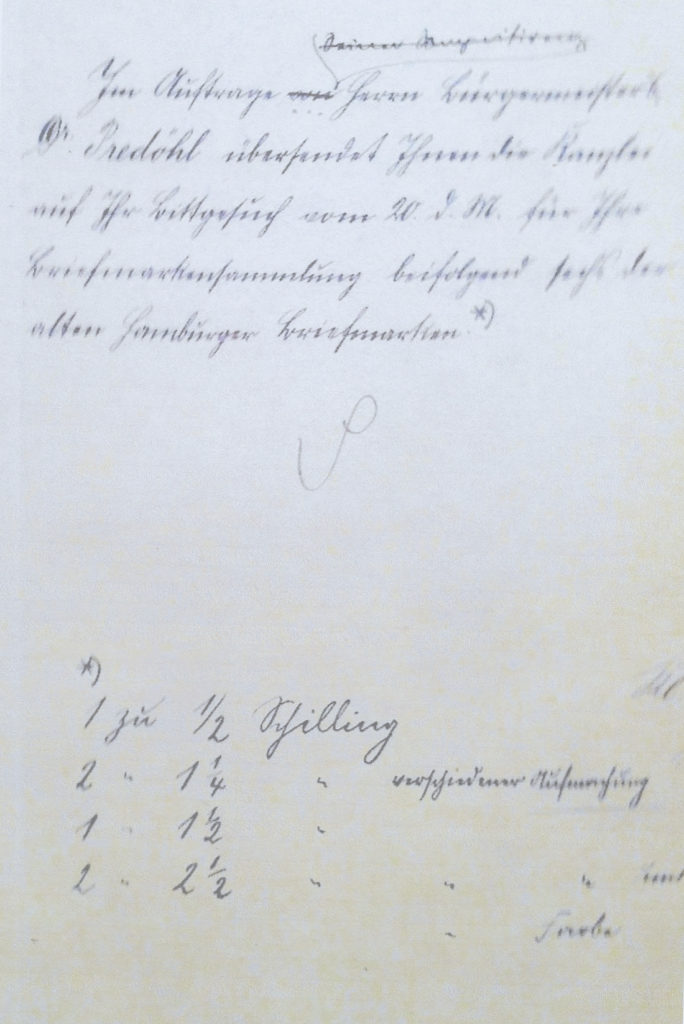 Seiner Magnifizenz
Im Auftrage von Herrn Bürgermeisters
Dr. Predöhl übersendet Ihnen die Kanzlei
auf Ihr Bittgesuch vom 20. d. M. für Ihre
Briefmarkensammlung beifolgend sechs der
alten Hamburger Briefmarken. *)
*)
1 zu 1/2 Schilling
2 " 1 1/4 " verschiedener Aufmachung
1 " 1 1/2 "
2 " 2 1/2 " " " und
" Farbe